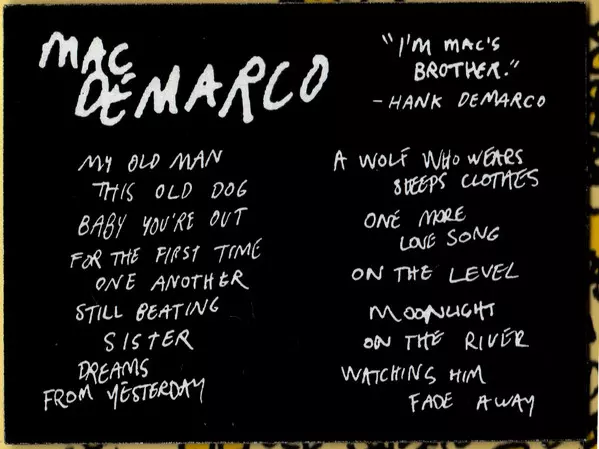 MAC
DEMARCO
"I'M MAC'S
BROTHER."
- HANK DEMARCO
MY OLD MAN
THIS OLD DOG
BABY YOU'RE OUT
FOR THE FIRST TIME
ONE ANOTHER
STILL BEATING
SISTER
DREAMS
FROM YESTERDAY
A WOLF WHO WEARS
SHEEPS CLOTHES
ONE MORE
LOVE SONG
ON THE LEVEL
MOONLIGHT
ON THE RIVER
WATCHING HIM
FADE AWAY